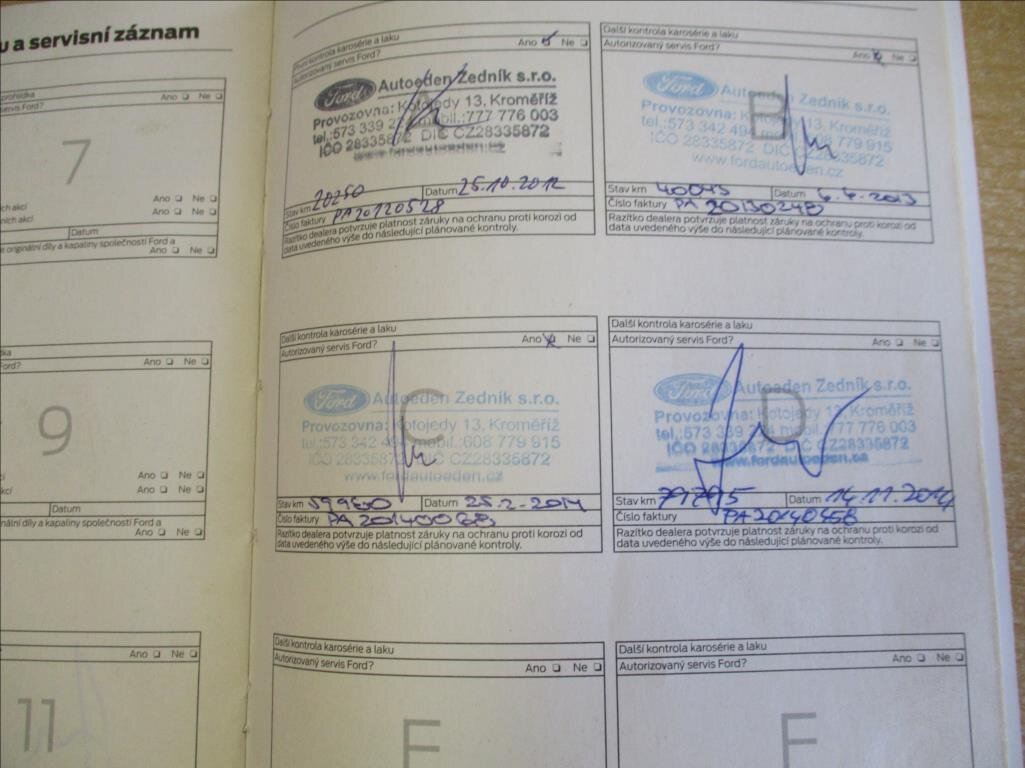 u a servisní záznam
prohlídka
Ano ❏ Ne ❏
servis Ford?
7
Ano ❏ Ne ❏
ních akcí
Ano ❏ Ne ❏
Datum
e originální díly a kapaliny společnosti Ford a
Ano ❏ Ne ❏
Ford?
Ano ❏ Ne ❏
9
Ano ❏ Ne ❏
akcí
Ano ❏ Ne ❏
Datum
nální díly a kapaliny společnosti Ford a
Ano ❏ Ne ❏
Ano ❏ Ne ❏
11
První kontrola karosérie a laku
Autorizovaný servis Ford?
Ano ❏ Ne ❏
A
Ford Autoeden Zedník s.r.o.
Provozovna: Kotojedy 13, Kroměříž
tel.:573 339 274 mobil.:777 776 003
IČO 28335872 DIČ CZ28335872
www.fordautoeden.cz
Stav km 20250 Datum 25.10.2012
Číslo faktury PA20120528
Razítko dealera potvrzuje platnost záruky na ochranu proti korozi od
data uvedeného výše do následující plánované kontroly.
Další kontrola karosérie a laku
Autorizovaný servis Ford?
Ano ❏ Ne ❏
B
Ford Autoeden Zedník s.r.o.
Provozovna: Kotojedy 13, Kroměříž
tel.:573 342 494 mobil.:608 779 915
IČO 28335872 DIČ CZ28335872
www.fordautoeden.cz
Stav km 40045 Datum 6.6.2013
Číslo faktury PA 20130248
Razítko dealera potvrzuje platnost záruky na ochranu proti korozi od
data uvedeného výše do následující plánované kontroly.
Další kontrola karosérie a laku
Autorizovaný servis Ford?
Ano ❏ Ne ❏
C
Ford Autoeden Zedník s.r.o.
Provozovna: Kotojedy 13, Kroměříž
tel.:573 342 494 mobil.:608 779 915
IČO 28335872 DIČ CZ28335872
www.fordautoeden.cz
Stav km 59960 Datum 25.2.2014
Číslo faktury PA 20140088
Razítko dealera potvrzuje platnost záruky na ochranu proti korozi od
data uvedeného výše do následující plánované kontroly.
Další kontrola karosérie a laku
Autorizovaný servis Ford?
Ano ❏ Ne ❏
D
Ford Autoeden Zedník s.r.o.
Provozovna: Kotojedy 13, Kroměříž
tel.:573 339 274 mobil.:777 776 003
IČO 28335872 DIČ CZ28335872
www.fordautoeden.cz
Stav km 79795 Datum 14.11.2014
Číslo faktury PA20140458
Razítko dealera potvrzuje platnost záruky na ochranu proti korozi od
data uvedeného výše do následující plánované kontroly.
Další kontrola karosérie a laku
Autorizovaný servis Ford?
Ano ❏ Ne ❏
E
Další kontrola karosérie a laku
Autorizovaný servis Ford?
Ano ❏ Ne ❏
F